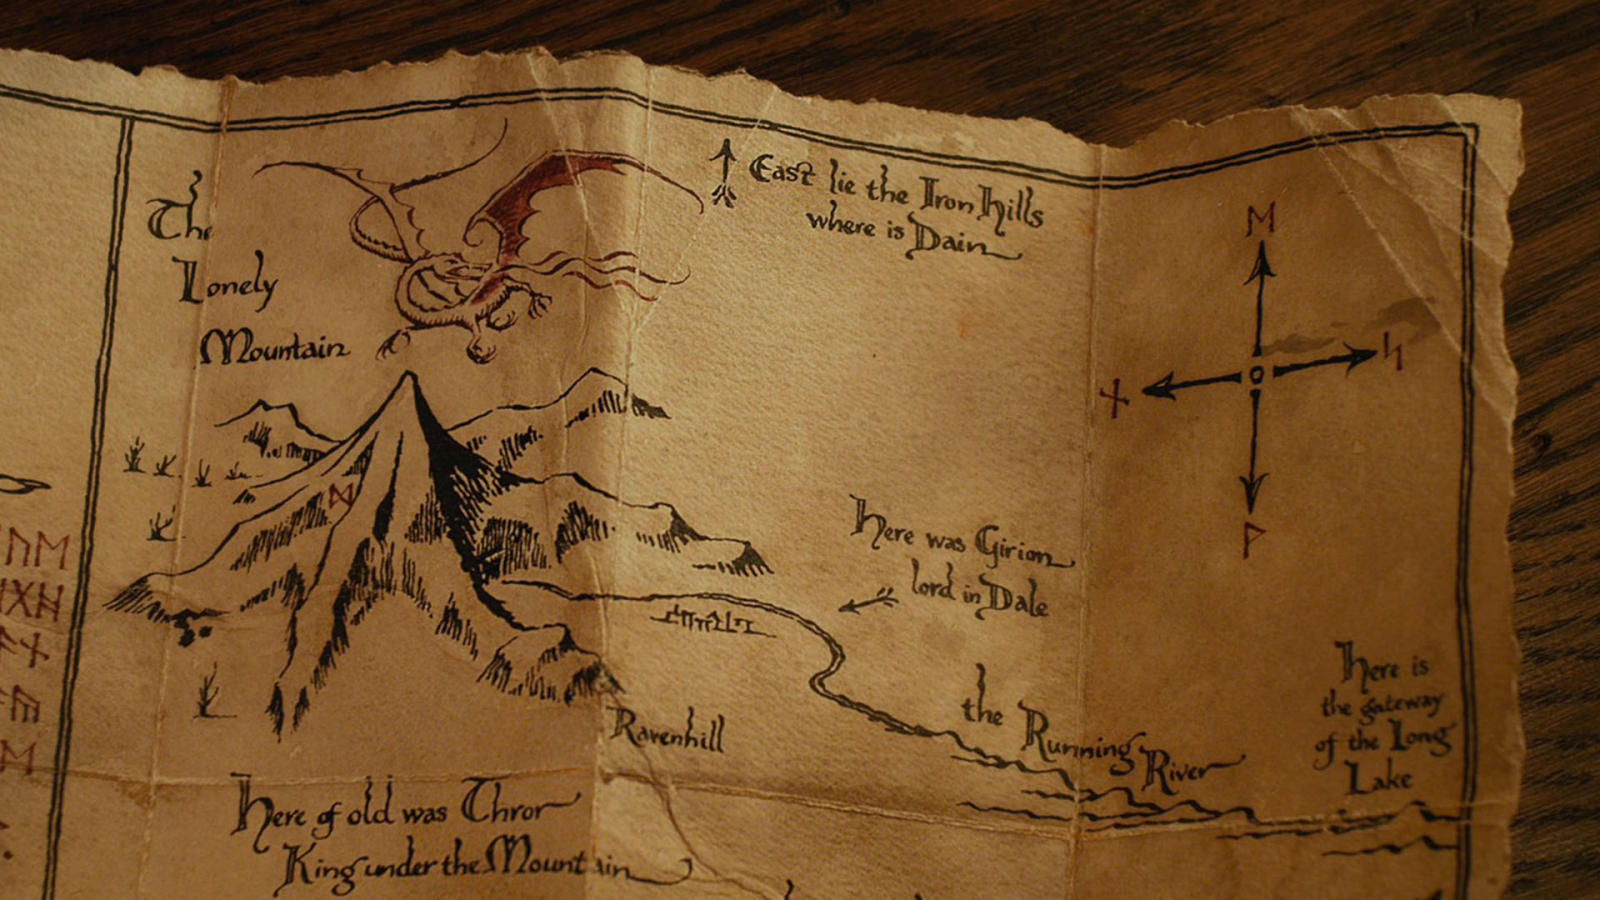 The
Lonely
Mountain
East lie the Iron Hills
where is Dain
ᛖ
ᛋ
ᚾ
ᚹ
ᛞ
Here was Girion
lord in Dale
Ravenhill
the Running River
Here is
the gateway
of the Long
Lake
Here of old was Thror
King under the Mountain
ᚢᛖ